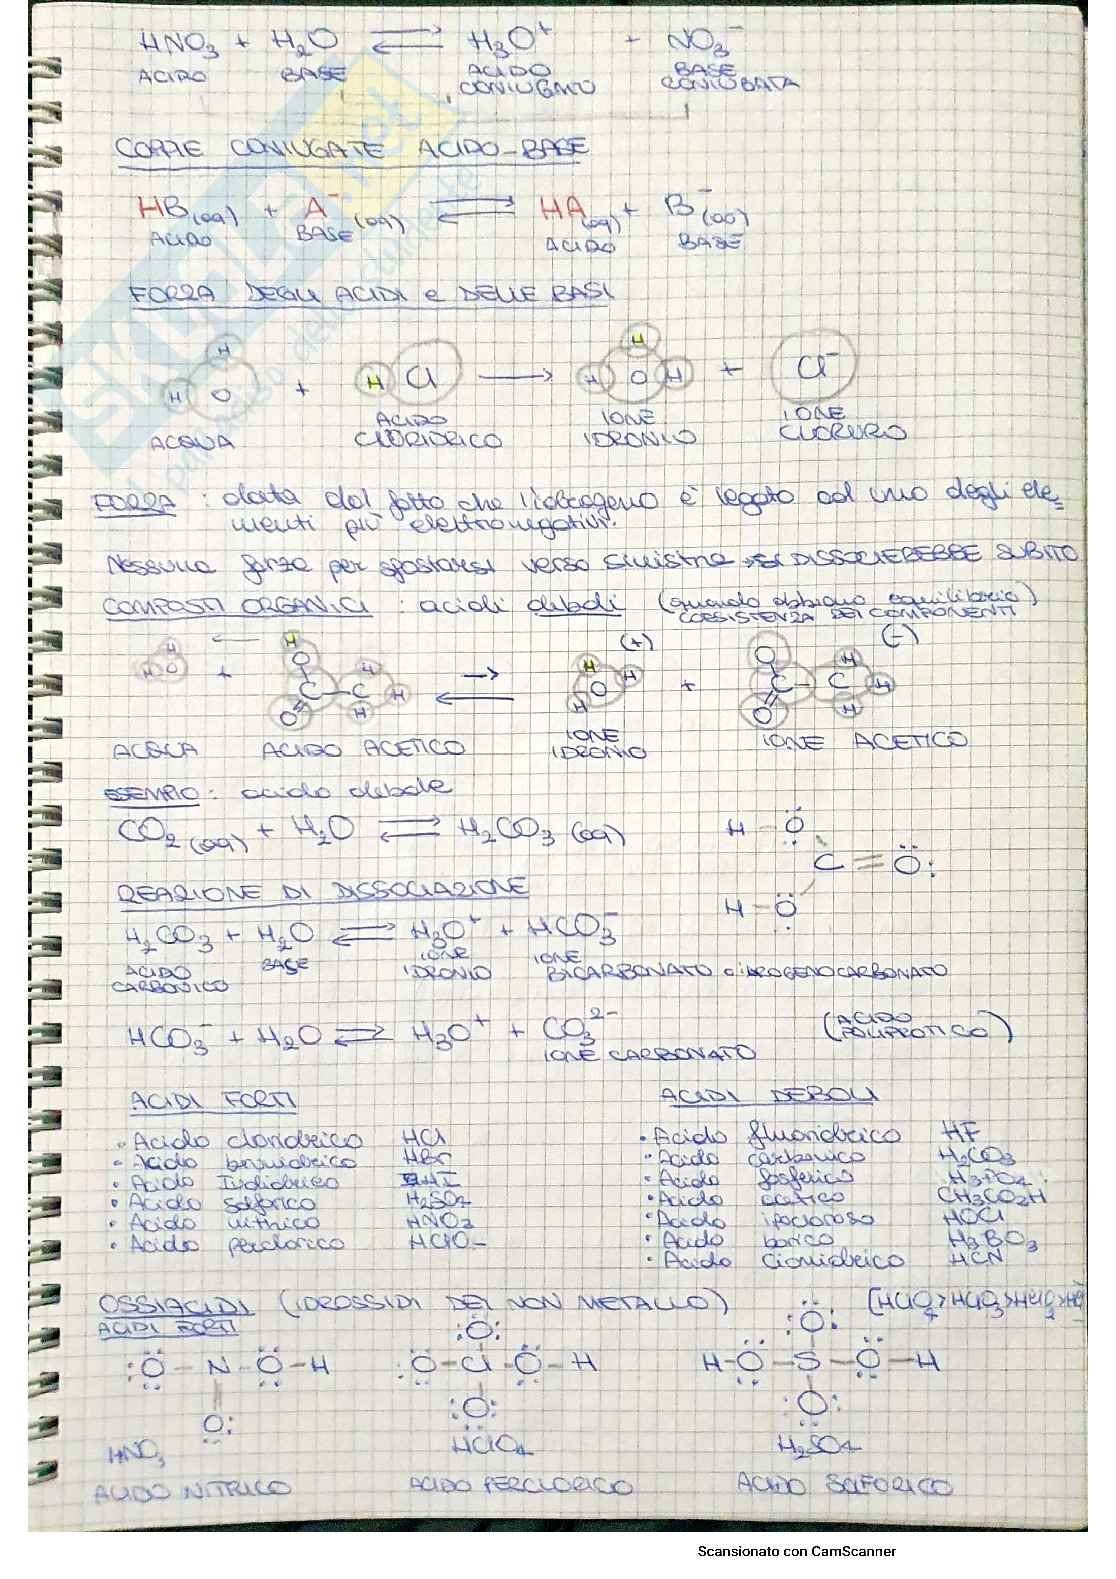 HNO₃ + H₂O ⇌ H₃O⁺ + NO₃⁻
ACIDO BASE ACIDO CONIUGATO BASE CONIUGATA
COPPIE CONIUGATE ACIDO-BASE
HB(aq) + A⁻(aq) ⇌ HA(aq) + B⁻(aq)
ACIDO BASE ACIDO BASE
FORZA DEGLI ACIDI e DELLE BASI
H H O + H Cl → H H O H + Cl⁻
ACQUA ACIDO CLORIDRICO IONE IDRONIO IONE CLORURO
FORZA : data dal fatto che l'idrogeno è legato ad uno degli ele
menti più elettronegativi.
Nessuna forza per spostarsi verso sinistra SI DISSOCIEREBBE SUBITO
COMPOSTI ORGANICI : acidi deboli (quando abbiamo equilibrio)
COESISTENZA DEI COMPONENTI
(+) (-)
ACQUA ACIDO ACETICO IONE IDRONIO IONE ACETICO
ESEMPIO : acido debole
CO₂(aq) + H₂O ⇌ H₂CO₃(aq)
H - O
C = O:
H - O
REAZIONE DI DISSOCIAZIONE
H₂CO₃ + H₂O ⇌ H₃O⁺ + HCO₃⁻
ACIDO CARBONICO BASE IONE IDRONIO IONE BICARBONATO o IDROGENOCARBONATO
HCO₃⁻ + H₂O ⇌ H₃O⁺ + CO₃²⁻ (ACIDO POLIPROTICO)
IONE CARBONATO
ACIDI FORTI
• Acido cloridrico HCl
• Acido bromidrico HBr
• Acido Iodidrico HI
• Acido solforico H₂SO₄
• Acido nitrico HNO₃
• Acido perclorico HClO₄
ACIDI DEBOLI
• Acido fluoridrico HF
• Acido carbonico H₂CO₃
• Acido fosforico H₃PO₄
• Acido acetico CH₃CO₂H
• Acido ipocloroso HOCl
• Acido borico H₃BO₃
• Acido cianidrico HCN
OSSIACIDI (IDROSSIDI DEI NON METALLO) (HClO₄>HClO₃>HClO₂>
ACIDI FORTI
:O - N - O - H
O:
HNO₃
ACIDO NITRICO
:O:
:O - Cl - O - H
:O:
HClO₄
ACIDO PERCLORICO
:O:
H - O - S - O - H
:O:
H₂SO₄
ACIDO SOLFORICO
Scansionato con CamScanner